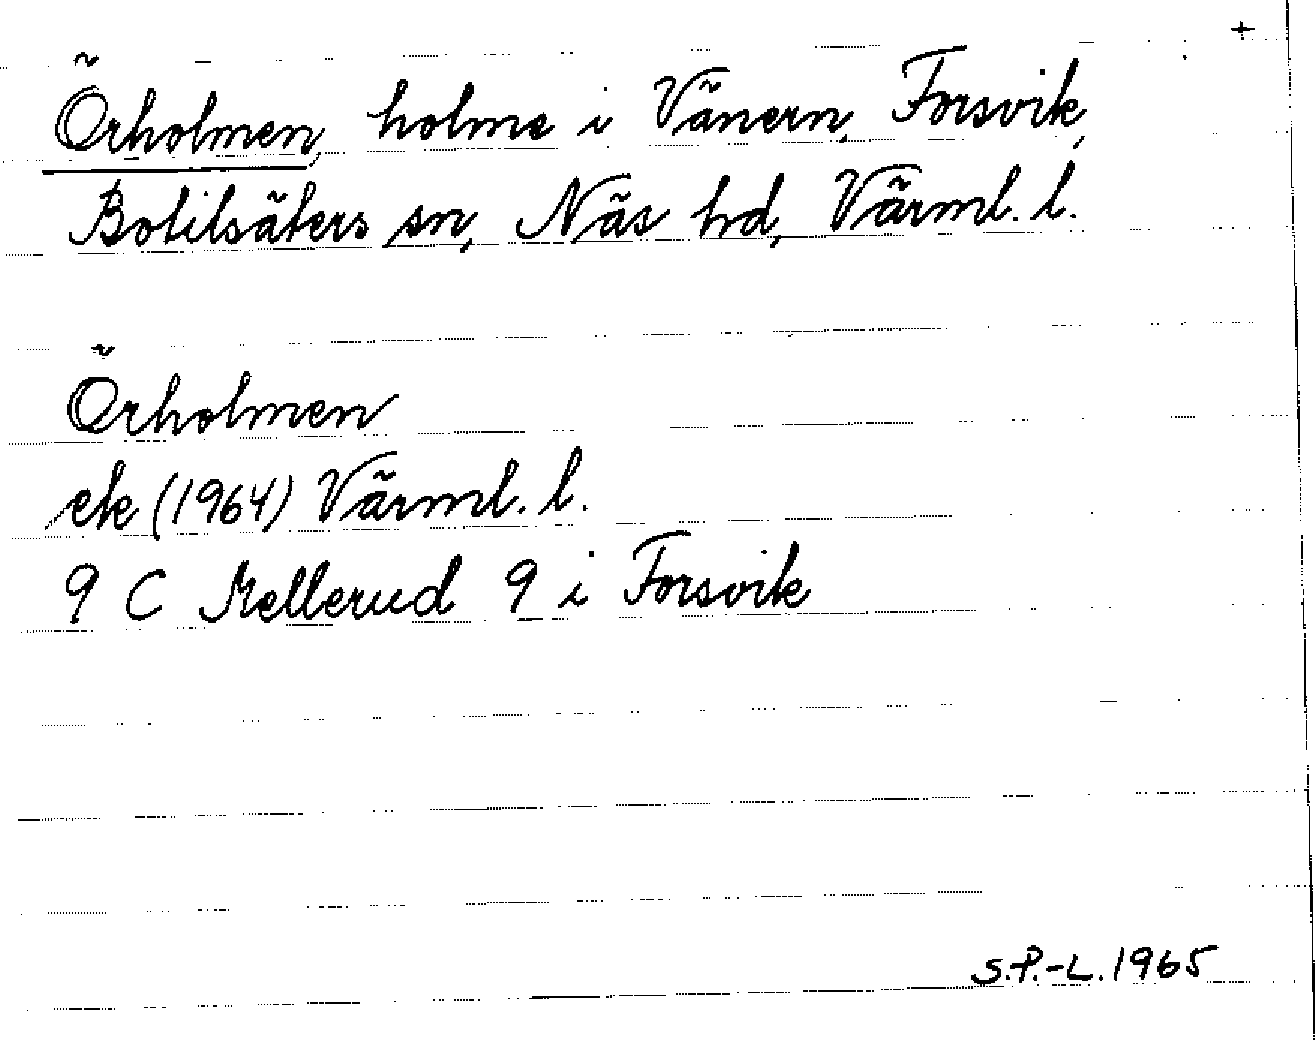 +
Örholmen, holme i Vänern, Forsvik,
Botilsäters sn, Näs hd, Värml. l.
Örholmen
ek (1964) Värml. l.
9 C Mellerud 9 i Forsvik
S.P.-L. 1965